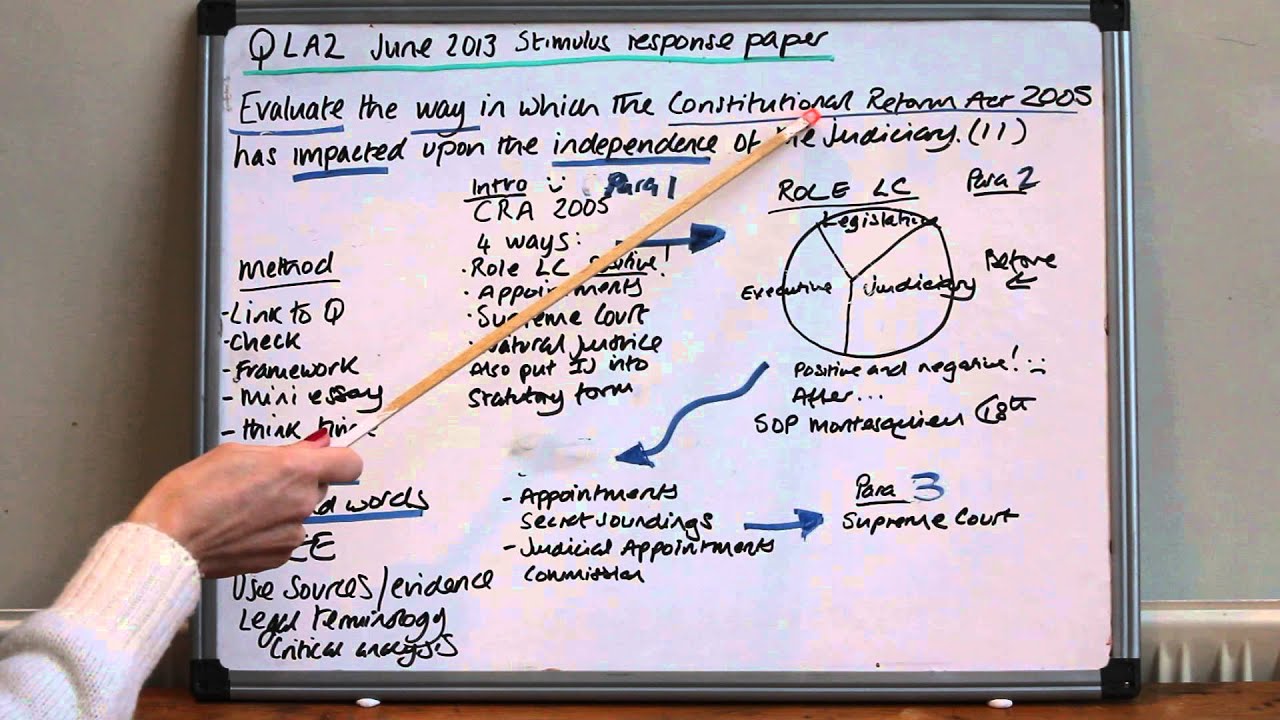 Q LA2 June 2013 Stimulus response paper
Evaluate the way in which the Constitutional Reform Act 2005
has impacted upon the independence of the Judiciary. (11)
Method
- Link to Q
- Check
- Framework
- Mini essay
- Think
words
Use Sources/evidence
Legal terminology
Critical analysis
Intro Para 1
CRA 2005
4 ways:
· Role LC positive!
· Appointments
· Supreme Court
· Natural Justice
Also put IJ into
Statutory form
ROLE LC Para 2
Legislative
Executive
Judiciary
Before
Positive and negative!
After...
SOP Montesquieu C18th
- Appointments
Secret Soundings
- Judicial Appointments
Commission
Para 3
Supreme Court